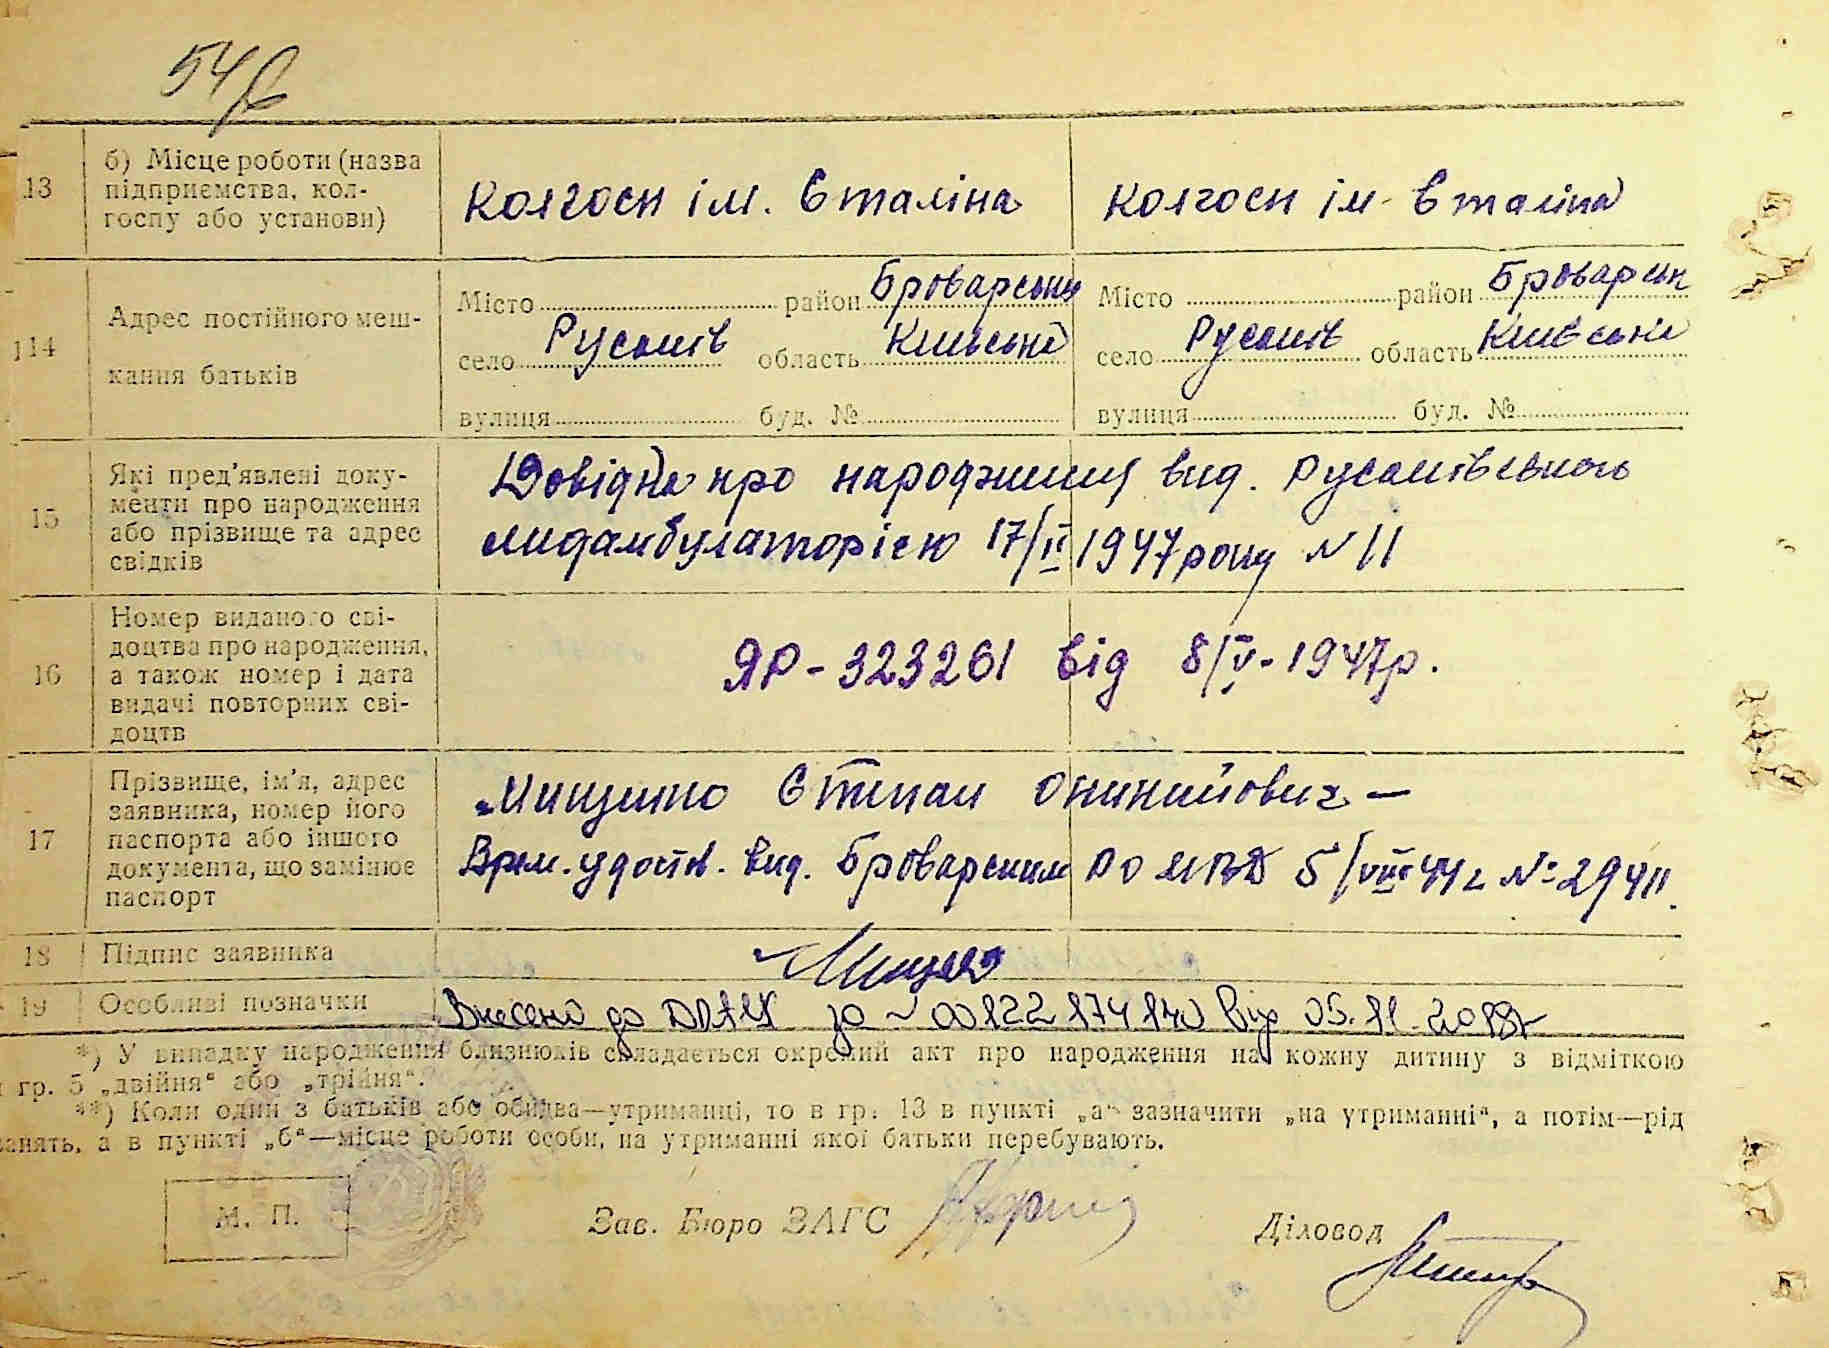 54
13 б) Місце роботи (назва підприємства, колгоспу або установи) колгосп ім. Сталіна колгосп ім. Сталіна
14 Адрес постійного мешкання батьків
Місто район Броварськи Місто район Броварськ
село Русанів область Київська село Русанів область Київська
вулиця буд. № вулиця буд. №
15 Які пред'явлені документи про народження або прізвище та адрес свідків
Довідка про народження вид. Русанівською
медамбулаторією 17/ІІ 1947 року № 11
16 Номер виданого свідоцтва про народження, а також номер і дата видачі повторних свідоцтв
ЯР-323261 від 8/V-1947р.
17 Прізвище, ім'я, адрес заявника, номер його паспорта або іншого документа, що замінює паспорт
Степан —
Врем. удостов. вид. Броварским РО МВД 5/VIII 44 г № 29411.
18 Підпис заявника
19 Особливі позначки Внесено до ДРАЦС за № 00122174140 від 05.11.2018р
*) У випадку народження близнюків складається окремий акт про народження на кожну дитину з відміткою
гр. 5 „двійня" або „трійня".
**) Коли один з батьків або обидва—утриманці, то в гр. 13 в пункті „а" зазначити „на утриманні", а потім—рід
занять, а в пункті „б"—місце роботи особи, на утриманні якої батьки перебувають.
М. П. Зав. Бюро ЗАГС Діловод